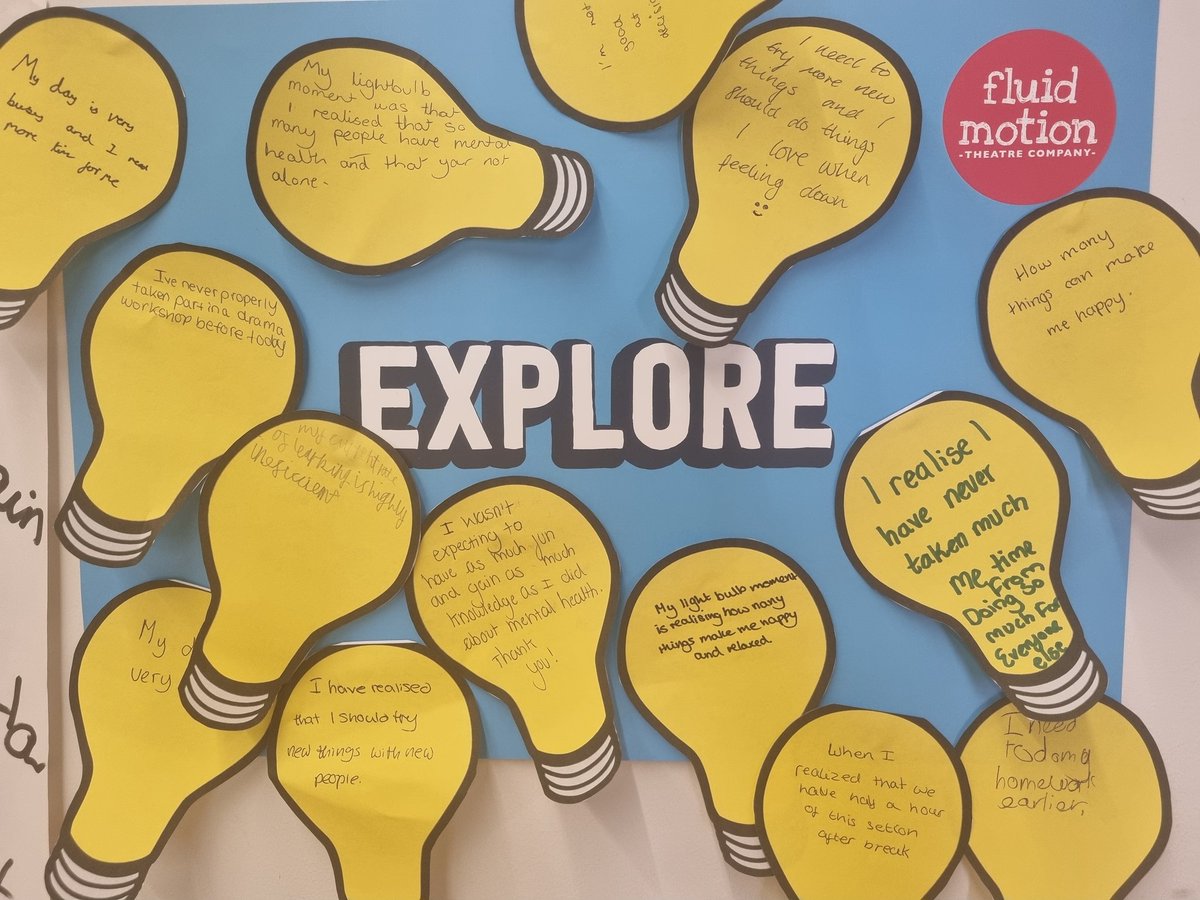 My day is very
busy and I need
more time for me
My lightbulb
moment was that
I realised that so
many people have mental
health and that your not
alone.
I need to
try more new
things and I
should do things
I love when
feeling down
fluid
motion
-THEATRE COMPANY-
How many
things can make
me happy.
I've never properly
taken part in a drama
workshop before today
EXPLORE
my
of learning is highly
I realise I
have never
taken much
Me time
From
Doing so
much For
Everyone
else
I wasn't
expecting to
have as much fun
and gain as much
knowledge as I did
about mental health.
Thank
you!
My light bulb moment
is realising how many
things make me happy
and relaxed.
My
very
I have realised
that I should try
new things with new
people.
When I
realized that we
have half a hour
of this
after break
I need
to do my
homework
earlier.